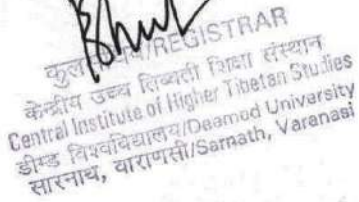 कुलसचिव/REGISTRAR
केन्द्रीय उच्च तिब्बती शिक्षा संस्थान
Central Institute of Higher Tibetan Studies
डीम्ड विश्वविद्यालय/Deamed University
सारनाथ, वाराणसी/Sarnath, Varanasi